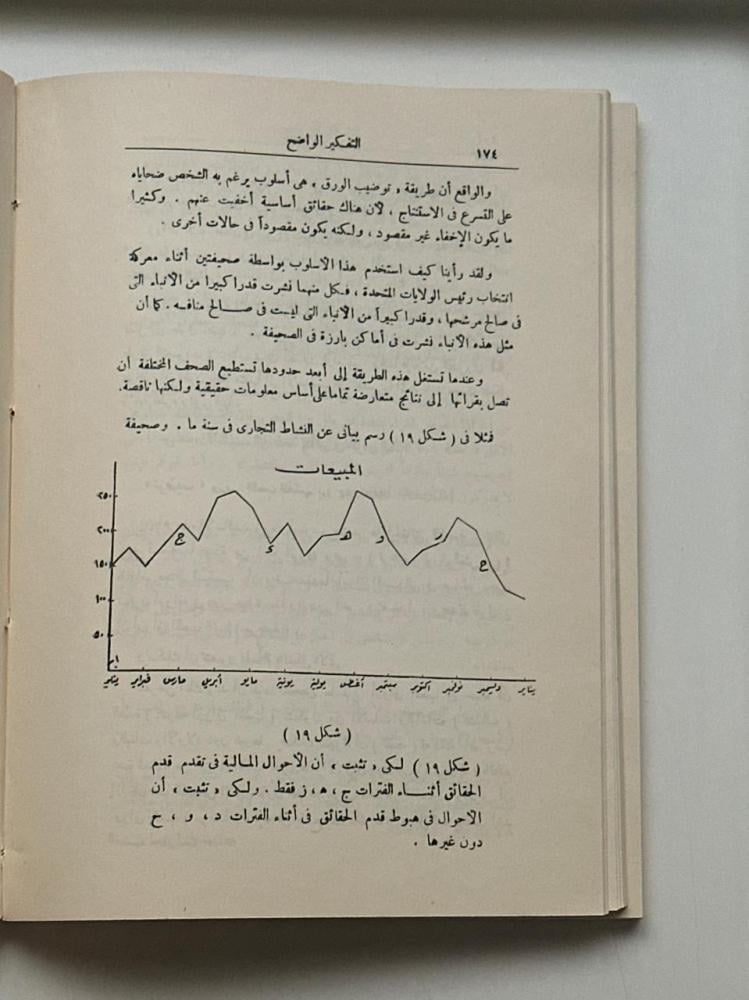 التفكير الواضح
١٧٤
والواقع أن طريقة « توضيب الورق » هى أسلوب يرغم به الشخص ضحاياه
على التسرع فى الاستنتاج ، لأن هناك حقائق أساسية أخفيت عنهم . وكثيرا
ما يكون الإخفاء غير مقصود ، ولكنه يكون مقصوداً فى حالات أخرى .
ولقد رأينا كيف استخدم هذا الأسلوب بواسطة صحيفتين أثناء معركة
انتخاب رئيس الولايات المتحدة ، فكل منهما نشرت قدرا كبيرا من الأنباء التى
فى صالح مرشحها ، وقدرا كبيراً من الأنباء التى ليست فى صالح منافسه . كما أن
مثل هذه الأنباء نشرت فى أماكن بارزة فى الصحيفة .
وعندما تستغل هذه الطريقة إلى أبعد حدودها تستطيع الصحف المختلفة أن
تصل بقرائها إلى نتائج متعارضة تماما على أساس معلومات حقيقية ولكنها ناقصة .
فمثلا فى ( شكل ١٩ ) رسم بيانى عن النشاط التجارى فى سنة ما . وصحيفة
المبيعات
٢٥٠
٢٠٠
١٥٠
١٠٠
٥٠
ج د ه و ز ح
يناير فبراير مارس أبريل مايو يونية يوليه أغسطس سبتمبر أكتوبر نوفمبر ديسمبر يناير
( شكل ١٩ )
( شكل ١٩ ) لكى « تثبت » أن الأحوال المالية فى تقدم قدم
الحقائق أثناء الفترات ج ، ه ، ز فقط . ولكى « تثبت » أن
الأحوال فى هبوط قدم الحقائق فى أثناء الفترات د ، و ، ح
دون غيرها .